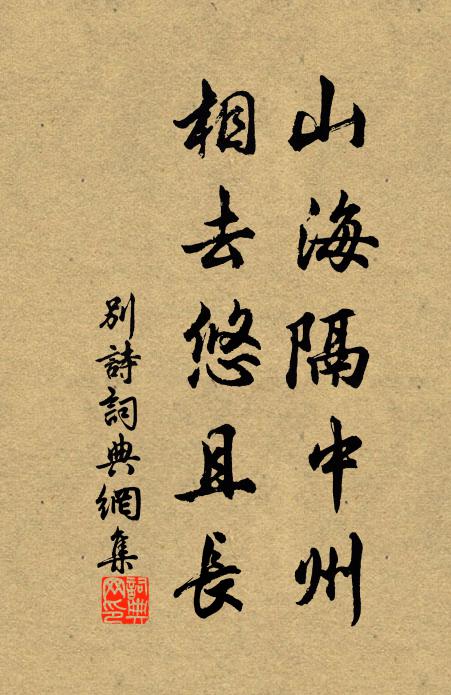 山海隔中州
相去悠且長
別詩詞典網集
詞典网印